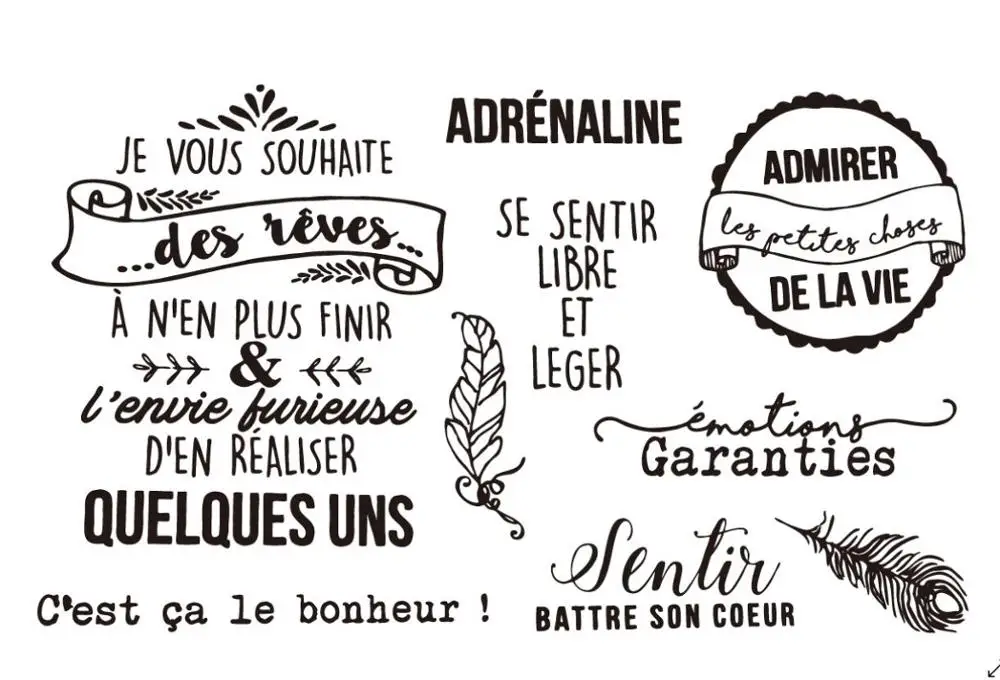 JE VOUS SOUHAITE
...des rêves...
À N'EN PLUS FINIR
&
l'envie furieuse
D'EN RÉALISER
QUELQUES UNS
C'est ça le bonheur !
ADRÉNALINE
SE SENTIR
LIBRE
ET
LEGER
ADMIRER
les petites choses
DE LA VIE
émotions
Garanties
Sentir
BATTRE SON COEUR